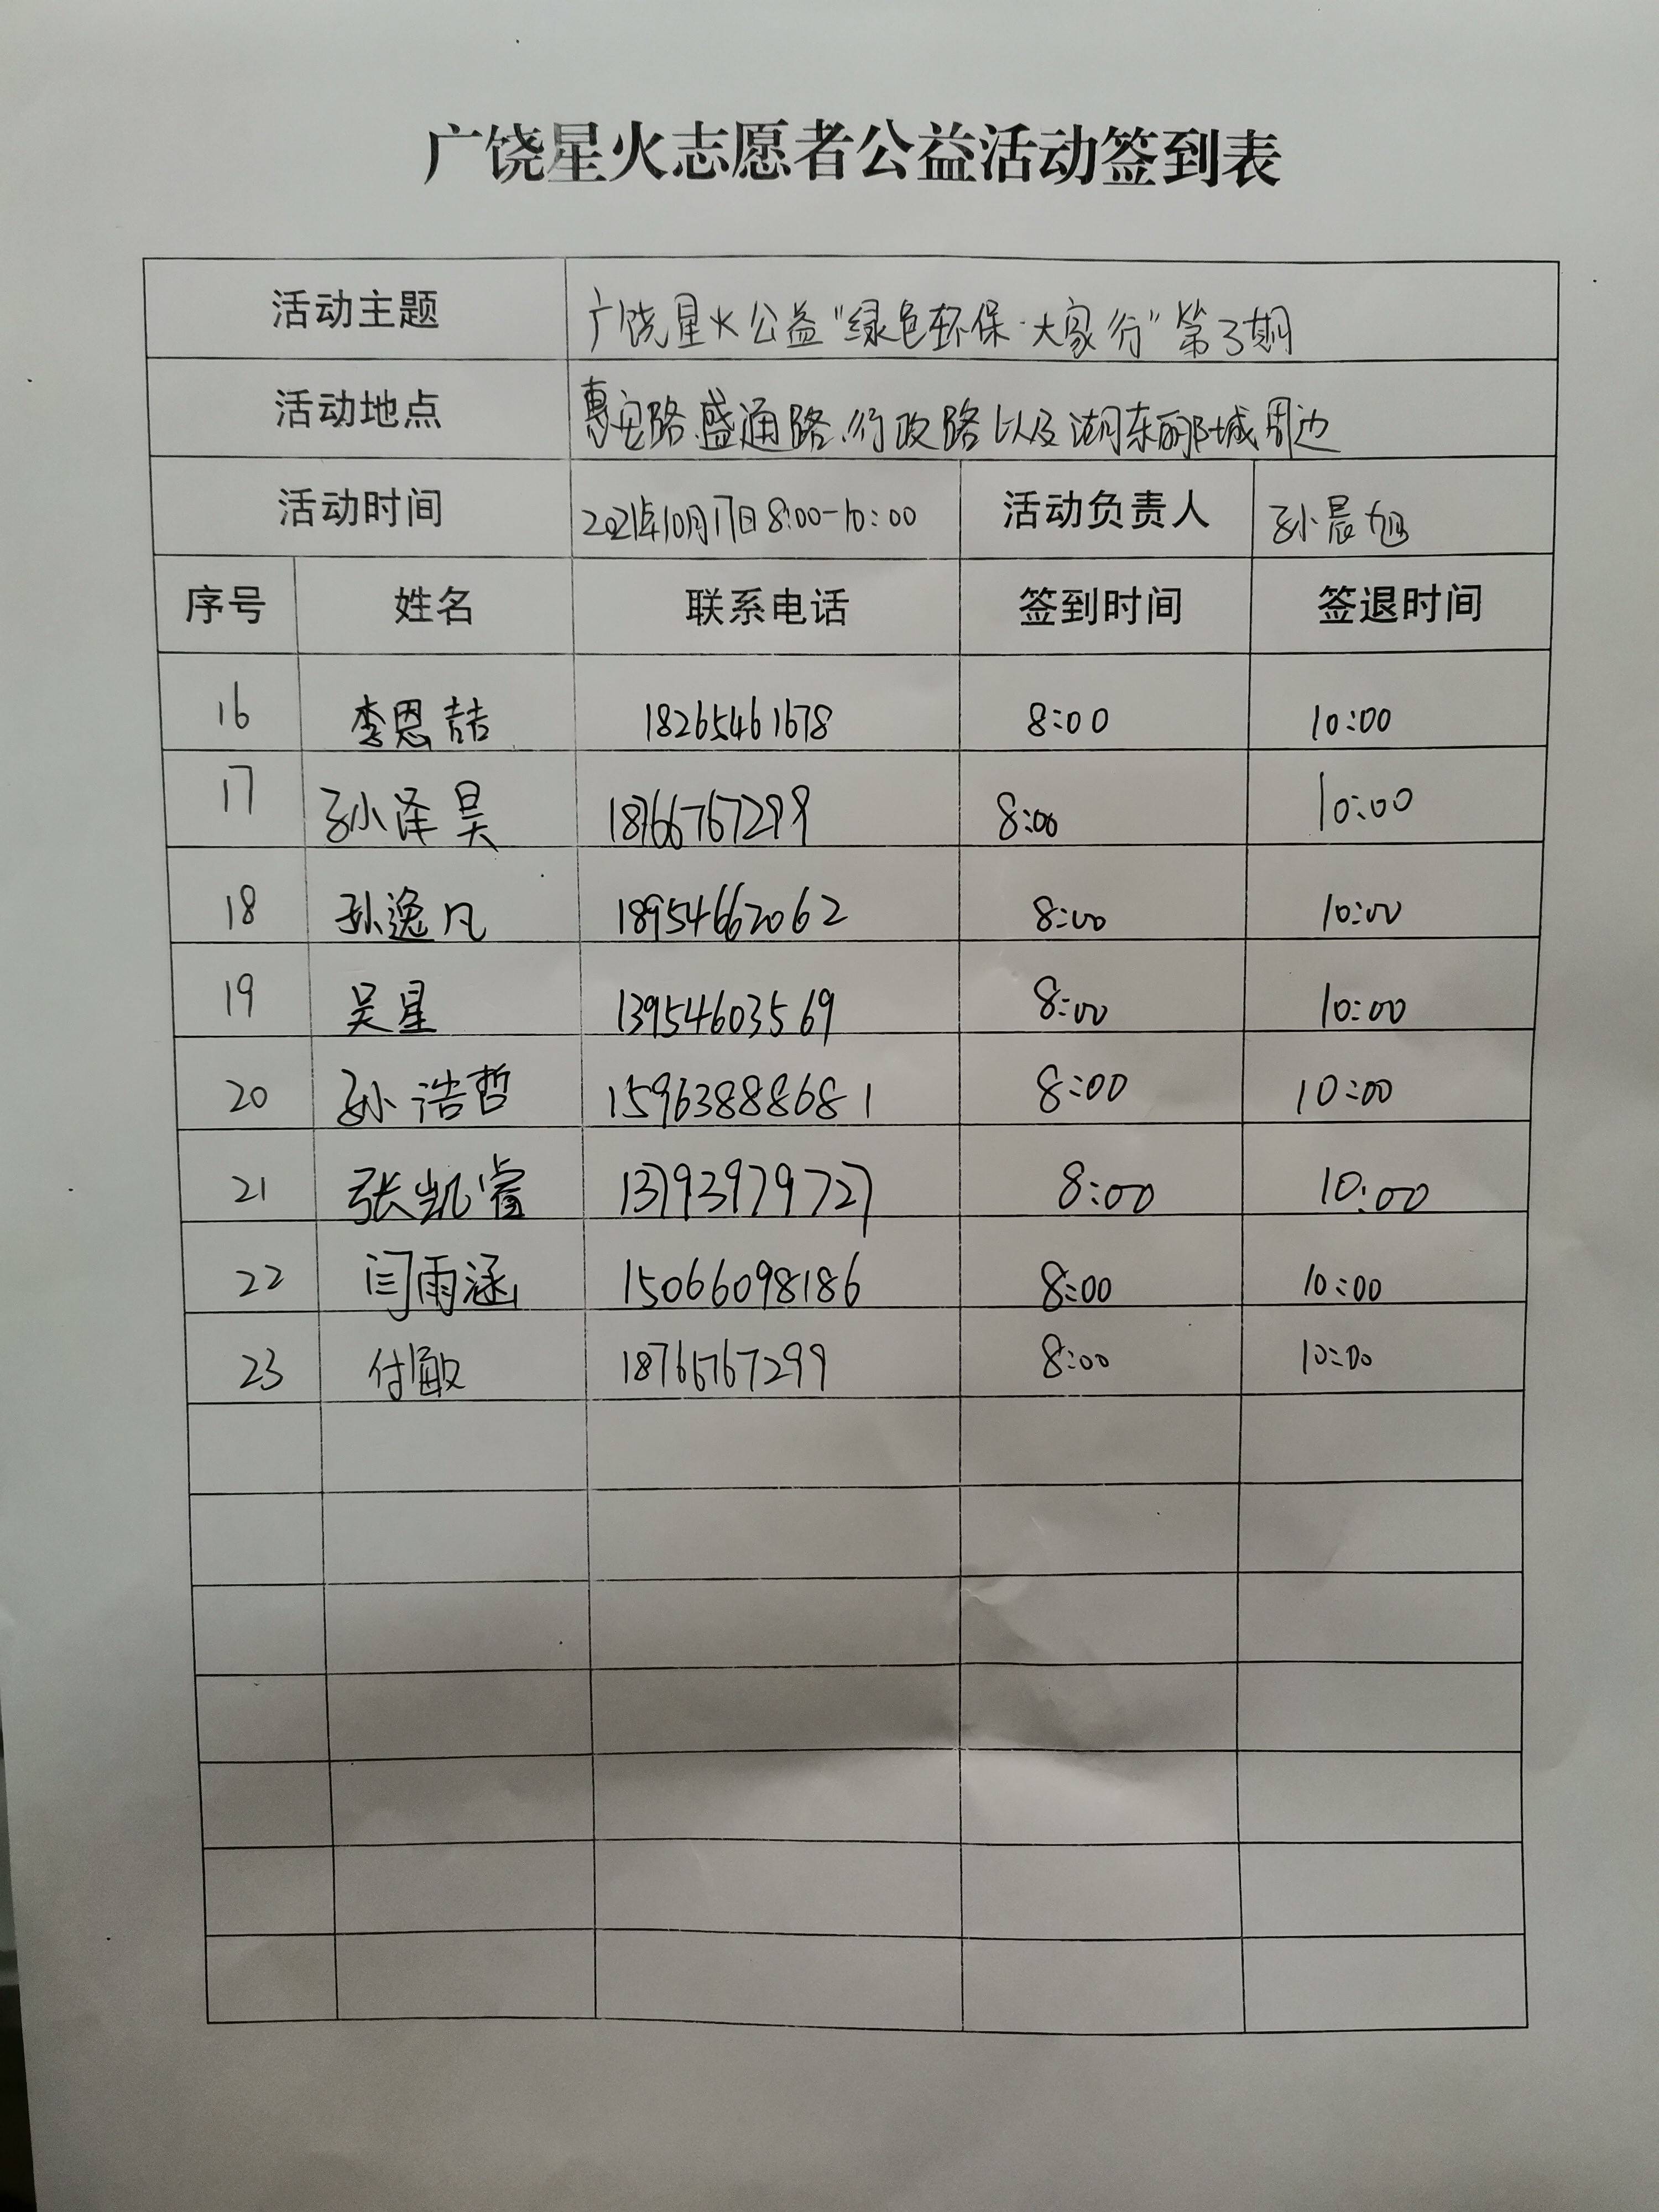 广饶星火志愿者公益活动签到表
活动主题 广饶星火公益“绿色环保·大家行”第3期
活动地点 惠安路、盛通路、行政路以及湖东郦城周边
活动时间 2021年10月17日8:00-10:00 活动负责人 孙晨旭
序号 姓名 联系电话 签到时间 签退时间
16 李恩喆 18265461678 8:00 10:00
17 孙泽昊 18766767299 8:00 10:00
18 孙逸凡 18954662062 8:00 10:00
19 吴星 13954603569 8:00 10:00
20 孙浩哲 15963888681 8:00 10:00
21 张凯睿 13793979727 8:00 10:00
22 闫雨涵 15066098186 8:00 10:00
23 付敏 18766767299 8:00 10:00